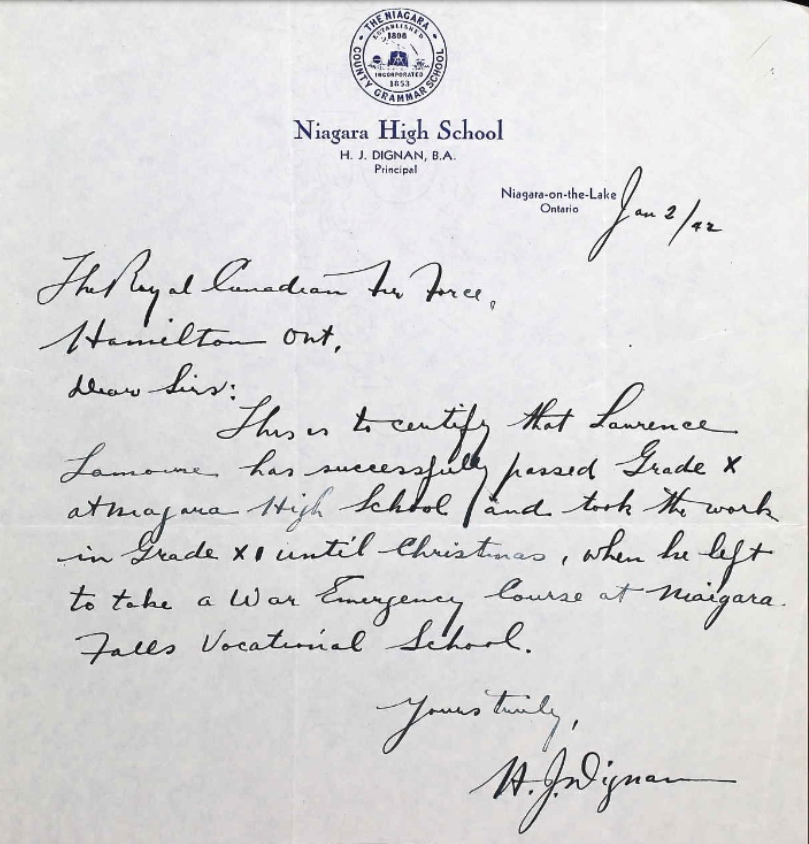 THE NIAGARA
COUNTY GRAMMAR SCHOOL
ESTABLISHED
1808
INCORPORATED
1853
Niagara High School
H. J. DIGNAN, B.A.
Principal
Niagara-on-the-Lake
Ontario
Jan 2/42
The Royal Canadian Air Force,
Hamilton Ont,
Dear Sirs:
This is to certify that Laurence
Lamourie has successfully passed Grade X
at Niagara High School and took the work
in Grade XI until Christmas, when he left
to take a War Emergency Course at Niagara
Falls Vocational School.
Yours truly,
H. J. Dignan